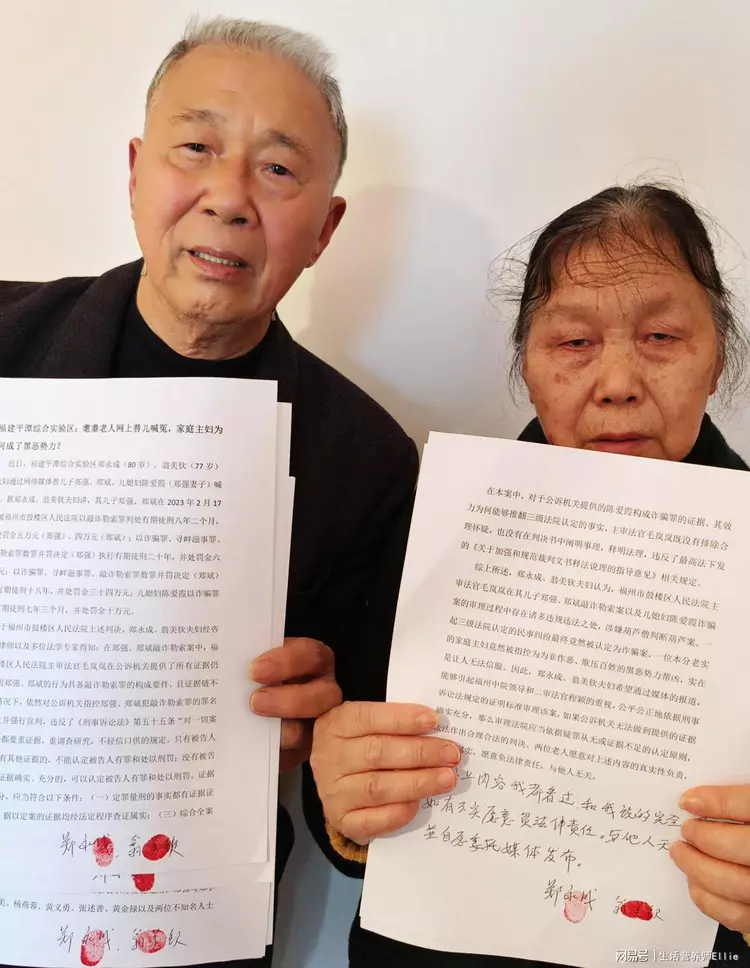 福建平潭综合实验区：耄耋老人网上替儿喊冤，家庭主妇为
何成了黑恶势力？
近日，福建平潭综合实验区郑永成（80 岁）、翁美钦（77 岁）
夫妇通过网络媒体替儿子郑强、郑斌、儿媳妇陈爱霞（郑强妻子）喊
据郑永成、翁美钦夫妇讲，其儿子郑强、郑斌在 2023 年 2 月 17
被福州市鼓楼区人民法院以敲诈勒索罪判处有期徒刑八年二个月，
处罚金五万元（郑强）、四万元（郑斌）；以诈骗罪、寻衅滋事罪、
勒索罪数罪并罚决定（郑强）执行有期徒刑二十年，并处罚金六
元；以诈骗罪、寻衅滋事罪、敲诈勒索罪数罪并罚决定（郑斌）
有期徒刑十八年，并处罚金三十四万元；儿媳妇陈爱霞以诈骗罪
有期徒刑七年三个月，并处罚金十万元。
于福州市鼓楼区人民法院上述判决，郑永成、翁美钦夫妇经咨
律师以及多位法学专家得知：在郑强、郑斌敲诈勒索案中，福
区人民法院主审法官毛岚岚在公诉机关提供了所有证据仍
明郑强、郑斌的行为具备敲诈勒索罪的构成要件，且证据链不
情况下，依然对公诉机关指控郑强、郑斌犯敲诈勒索罪的罪名
并强行宣判，违反了《刑事诉讼法》第五十五条“对一切案
都要重证据，重调查研究，不轻信口供的规定。只有被告人
有其他证据的，不能认定被告人有罪和处以刑罚；没有被告
证据确实、充分的，可以认定被告人有罪和处以刑罚。证据
分，应当符合以下条件：（一）定罪量刑的事实都有证据证
据以定案的证据均经法定程序查证属实；（三）综合全案
郑永成、翁美钦
美、杨燕莓、黄义勇、张述善、黄金禄以及两位不知名人士
郑永成、翁美钦
在本案中，对于公诉机关提供的陈爱霞构成诈骗罪的证据，其效
力为何能够推翻三级法院认定的事实，主审法官毛岚岚既没有排除合
理怀疑，也没有在判决书中阐明事理，释明法理，违反了最高法下发
的《关于加强和规范裁判文书释法说理的指导意见》相关规定。
综上所述，郑永成、翁美钦夫妇认为，福州市鼓楼区人民法院主
审法官毛岚岚在其儿子郑强、郑斌敲诈勒索案以及儿媳妇陈爱霞诈骗
案的审理过程中存在诸多违规违法之处，涉嫌葫芦僧判断葫芦案。一
起三级法院认定的民事纠纷最终竟然被认定为诈骗案，一位本分老实
的家庭主妇竟然被指控为为非作恶、欺压百姓的黑恶势力帮凶，实在
是让人无法信服。因此，郑永成、翁美钦夫妇希望通过媒体的报道，
能够引起福州中院领导和二审法官程颖的重视，公平公正地依据刑事
诉讼法规定的证明标准审理该案，如果公诉机关无法做到提供的证据
确实充分，那么审理法院应当依据疑罪从无或证据不足的认定原则，
依法作出合理合法的判决。两位老人愿意对上述内容的真实性负责，
实，愿意负法律责任，与他人无关。
以上内容我都看过，和我说的完全
如有不实愿意负法律责任。与他人无
并自愿委托媒体发布。
郑永成 翁美钦
网易号 | 生活营养师Ellie